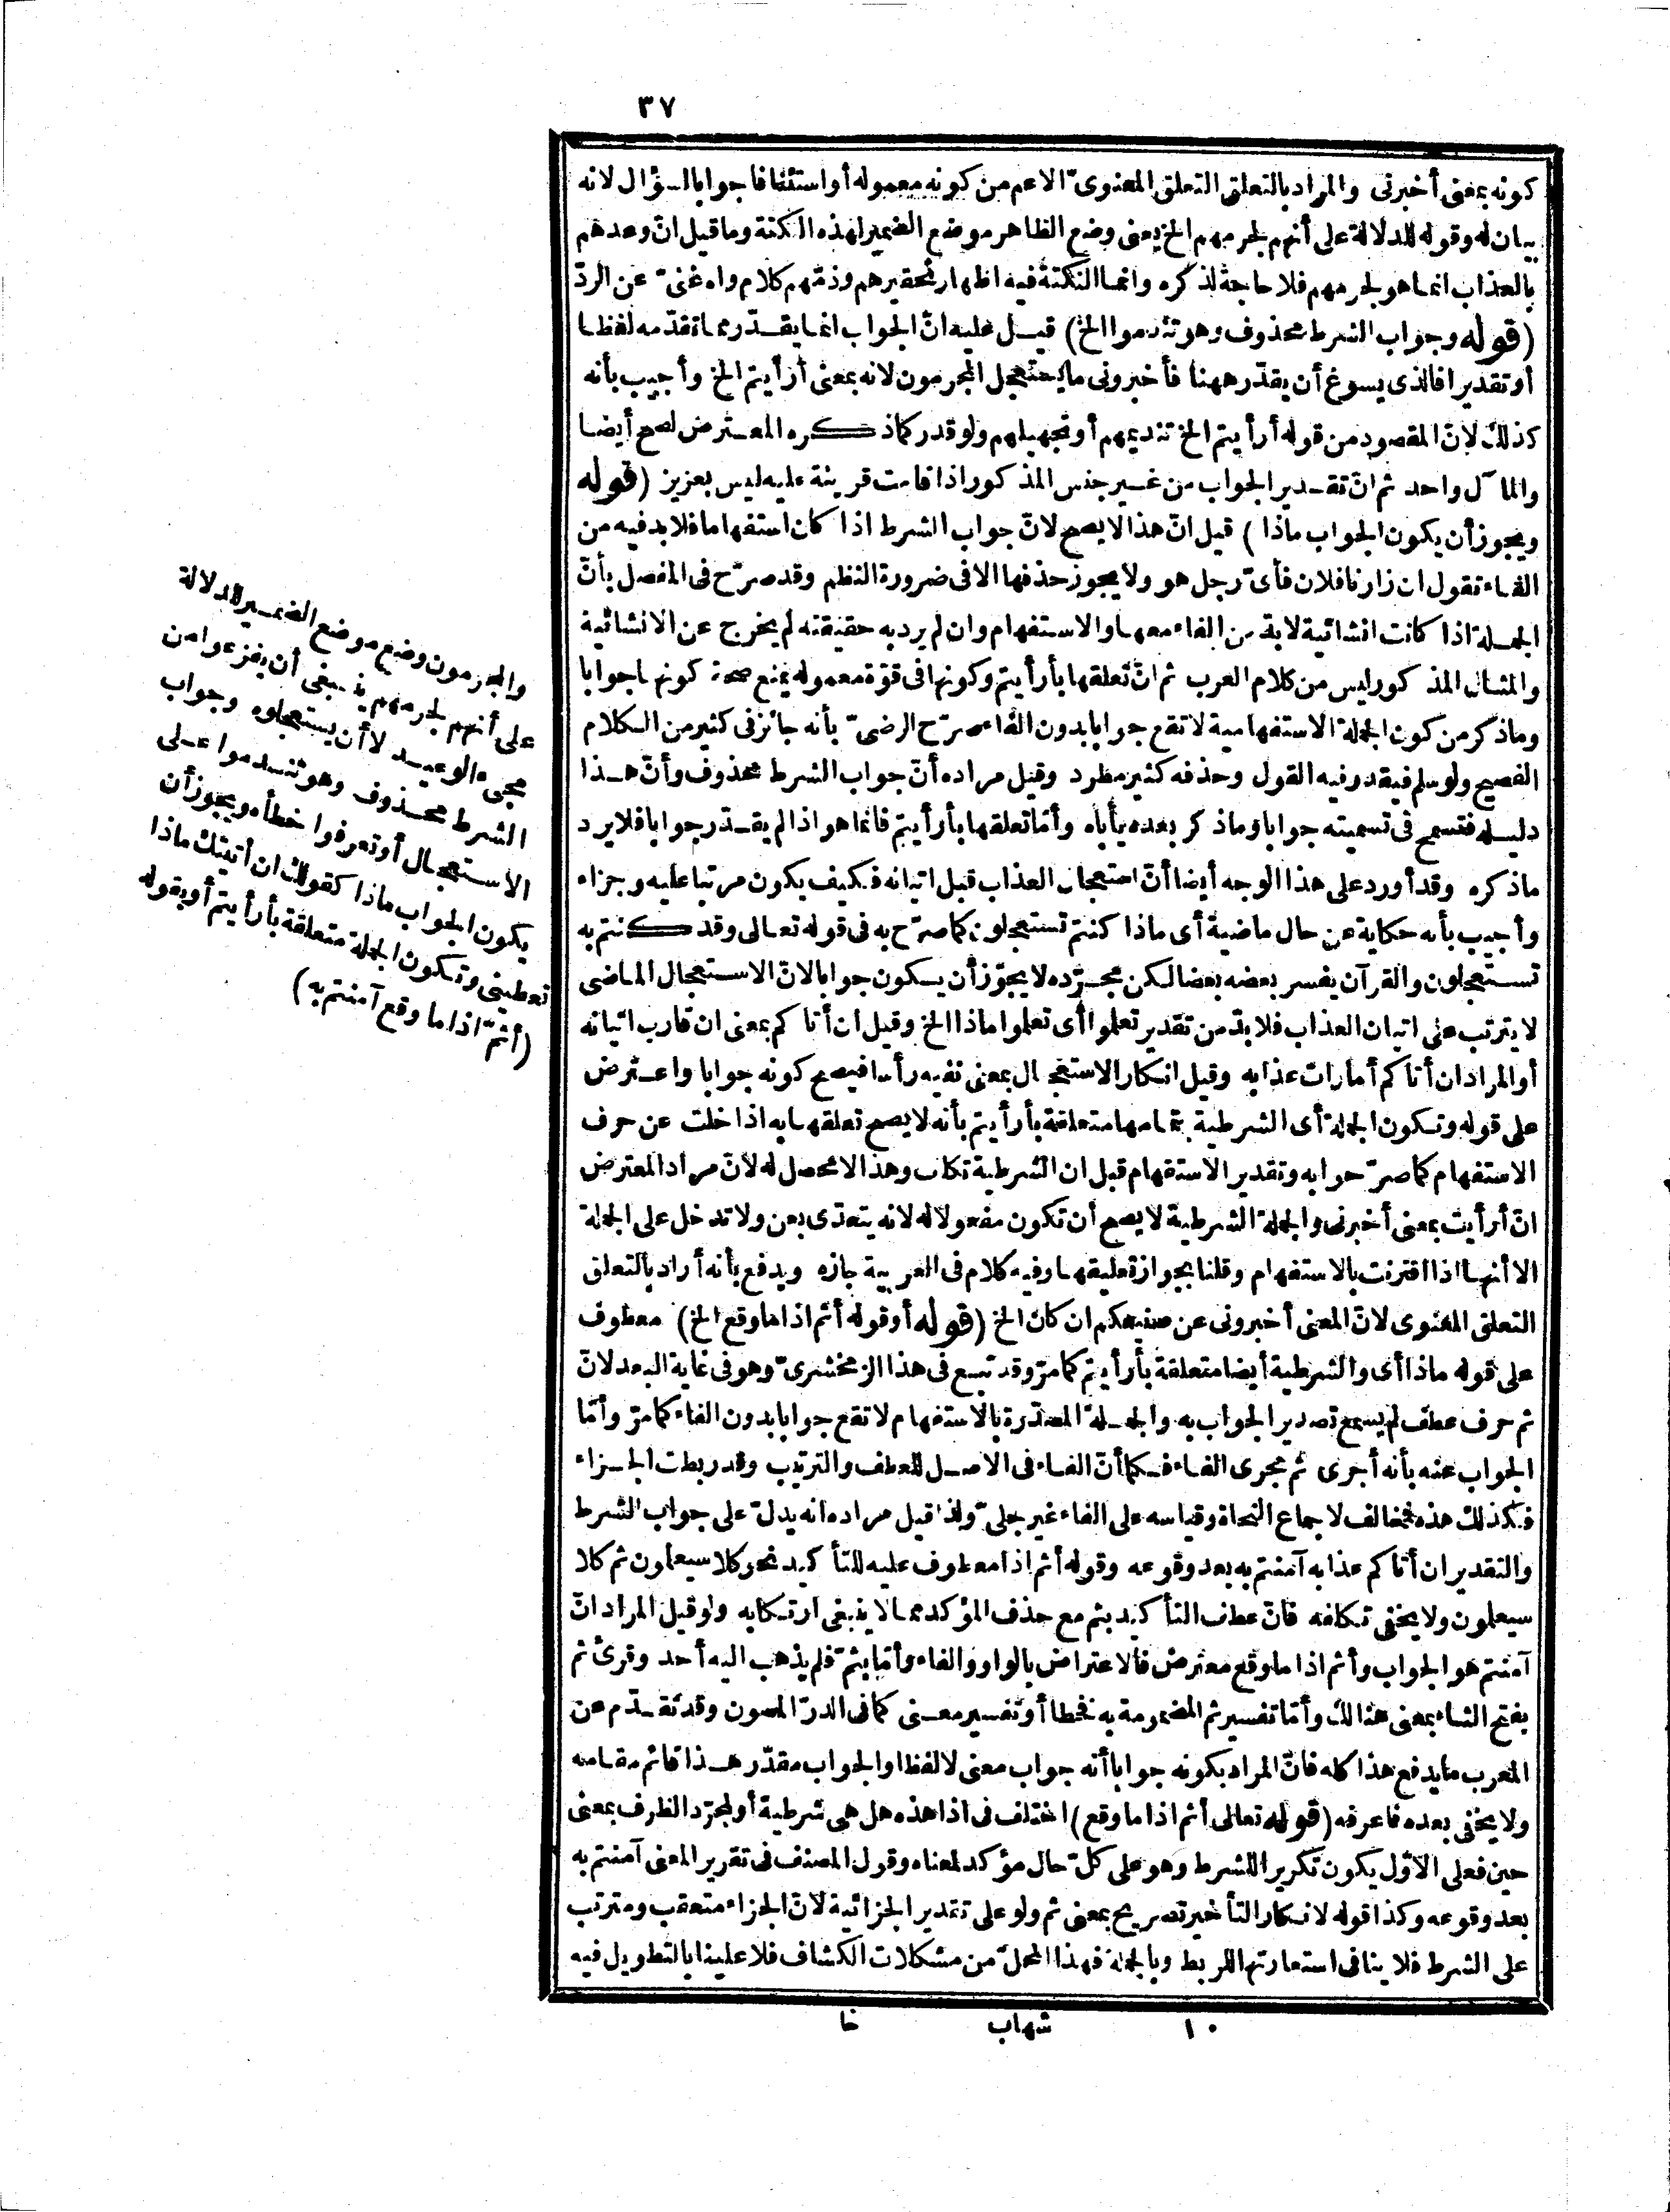 ٣٧
كونه بمعنى أخبرنى والمراد بالتعلق التعلق المعنوىّ الاعم من كونه معموله أو استئنافا جوابا لسؤال لانه
بيان له وقوله للدلالة على أنهم لجرمهم الخ يعنى وضع الظاهر موضع الضمير لهذه النكتة وما قيل انّ وعدهم
بالعذاب انما هو لجرمهم فلا حاجة لذكره وانما النكتة فيه اظهار تحقيرهم وذمّهم كلام واه غنىّ عن الردّ
(قوله وجواب الشرط محذوف وهو تندموا الخ) قيل عليه انّ الجواب انما يقدّر مما تقدّمه لفظا
أو تقديرا فالذى يسوغ أن يقدّر ههنا فأخبرونى ما يستعجل المجرمون لانه بمعنى أرأيتم الخ وأجيب بأنه
كذلك لانّ المقصود من قوله أرأيتم الخ تنديمهم أو تجهيلهم ولو قدر كما ذكره المعترض لصح أيضا
والمآل واحد ثم انّ تقدير الجواب من غير جنس المذكور اذا قامت قرينة عليه ليس بعزيز (قوله
ويجوز أن يكون الجواب ماذا) قيل انّ هذا لا يصح لانّ جواب الشرط اذا كان استفهاما فلا بد فيه من
الفاء تقول ان زارنا فلان فأىّ رجل هو ولا يجوز حذفها الا فى ضرورة النظم وقد صرّح فى المفصل بأنّ
الجملة اذا كانت انشائية لابدّ من الفاء معها والاستفهام وان لم يرد به حقيقته لم يخرج عن الانشائية
والمثال المذكور ليس من كلام العرب ثم انّ تعلقها بأرأيتم وكونها فى قوّة معموله يمنع صحة كونها جوابا
وما ذكر من كون الجملة الاستفهامية لا تقع جوابا بدون الفاء صرّح الرضىّ بأنه جائز فى كثير من الكلام
الفصيح ولو سلم فيقدر فيه القول وحذفه كثير مطرد وقيل مراده أنّ جواب الشرط محذوف وأنّ هذا
دليله فتسمح فى تسميته جوابا وما ذكر بعده يأباه وأمّا تعلقها بأرأيتم فانما هو اذا لم يقدّر جوابا فلا يرد
ما ذكره وقد أورد على هذا الوجه أيضا أنّ استعجال العذاب قبل اتيانه فكيف يكون مرتبا عليه وجزاء
وأجيب بأنه حكاية عن حال ماضية أى ماذا كنتم تستعجلون كما صرّح به فى قوله تعالى وقد كنتم به
تستعجلون والقرآن يفسر بعضه بعضا لكن مجرّده لا يجوّز أن يكون جوابا لانّ الاستعجال الماضى
لا يترتب على اتيان العذاب فلا بدّ من تقدير تعلموا أى تعلموا ماذا الخ وقيل ان أتاكم بمعنى ان قارب اتيانه
أو المراد ان أتاكم أمارات عذابه وقيل انكار الاستعجال بمعنى نفيه رأسا فيصح كونه جوابا واعترض
على قوله وتكون الجملة أى الشرطية بتمامها متعلقة بأرأيتم بأنه لا يصح تعلقها به اذا خلت عن حرف
الاستفهام كما صرّحوا به وتقدير الاستفهام قبل ان الشرطية تكلف وهذا لا محصل له لانّ مراد المعترض
انّ أرأيت بمعنى أخبرنى والجملة الشرطية لا يصح أن تكون مفعولا له لانه يتعدّى بعن ولا تدخل على الجملة
الا أنها اذا اقترنت بالاستفهام وقلنا بجواز تعليقها وفيه كلام فى العربية جاز. ويدفع بأنه أراد بالتعلق
التعلق المعنوى لانّ المعنى أخبرونى عن صنيعكم ان كان الخ (قوله أو قوله أثم اذا ما وقع الخ) معطوف
على قوله ماذا أى والشرطية أيضا متعلقة بأرأيتم كما مرّ وقد تبع فى هذا الزمخشرىّ وهو فى غاية البعد لانّ
ثم حرف عطف لم يسمع تصدير الجواب به والجملة المصدّرة بالاستفهام لا تقع جوابا بدون الفاء كما مرّ وأمّا
الجواب عنه بأنه أجرى ثم مجرى الفاء فكما أنّ الفاء فى الاصل للعطف والترتيب وقد ربطت الجزاء
فكذلك هذه فمخالف لاجماع النحاة وقياسه على الفاء غير جلىّ ولذا قيل مراده انه يدلّ على جواب الشرط
والتقدير ان أتاكم عذابه آمنتم به بعد وقوعه وقوله أثم اذا معطوف عليه للتأكيد نحو كلا سيعلمون ثم كلا
سيعلمون ولا يخفى تكلفه فانّ عطف التأكيد بثم مع حذف المؤكد مما لا ينبغى ارتكابه ولو قيل المراد انّ
آمنتم هو الجواب وأثم اذا ما وقع معترض فالاعتراض بالواو والفاء وأمّا بثمّ فلم يذهب اليه أحد وقرئ ثم
بفتح الثاء بمعنى هنالك وأمّا تفسير ثم المضمومة به فخطأ أو تفسير معنى كما فى الدرّ المصون وقد تقدّم عن
المعرب ما يدفع هذا كله فانّ المراد بكونه جوابا أنه جواب معنى لا لفظا والجواب مقدّر هذا قائم مقامه
ولا يخفى بعده فاعرفه (قوله تعالى أثم اذا ما وقع) اختلف فى اذا هذه هل هى شرطية أو لمجرّد الظرف بمعنى
حين فعلى الاوّل يكون تكريرا للشرط وهو على كلّ حال مؤكد لمعناه وقول المصنف فى تقرير المعنى آمنتم به
بعد وقوعه وكذا قوله لانكار التأخير تصريح بمعنى ثم ولو على تقدير الجزائية لانّ الجزاء متعقب ومترتب
على الشرط فلا ينافى استعارتها للربط وبالجملة فهذا المحلّ من مشكلات الكشاف فلا علينا بالتطويل فيه
والمجرمون وضع موضع الضمير للدلالة
على أنهم لجرمهم ينبغى أن يفزعوا من
مجىء الوعيد لا أن يستعجلوه وجواب
الشرط محذوف وهو تندموا على
الاستعجال أو تعرفوا خطأه ويجوز أن
يكون الجواب ماذا كقولك ان أتيتك ماذا
تعطينى وتكون الجملة متعلقة بأرأيتم أو بقوله
(أثمّ اذا ما وقع آمنتم به)
١٠ شهاب خا